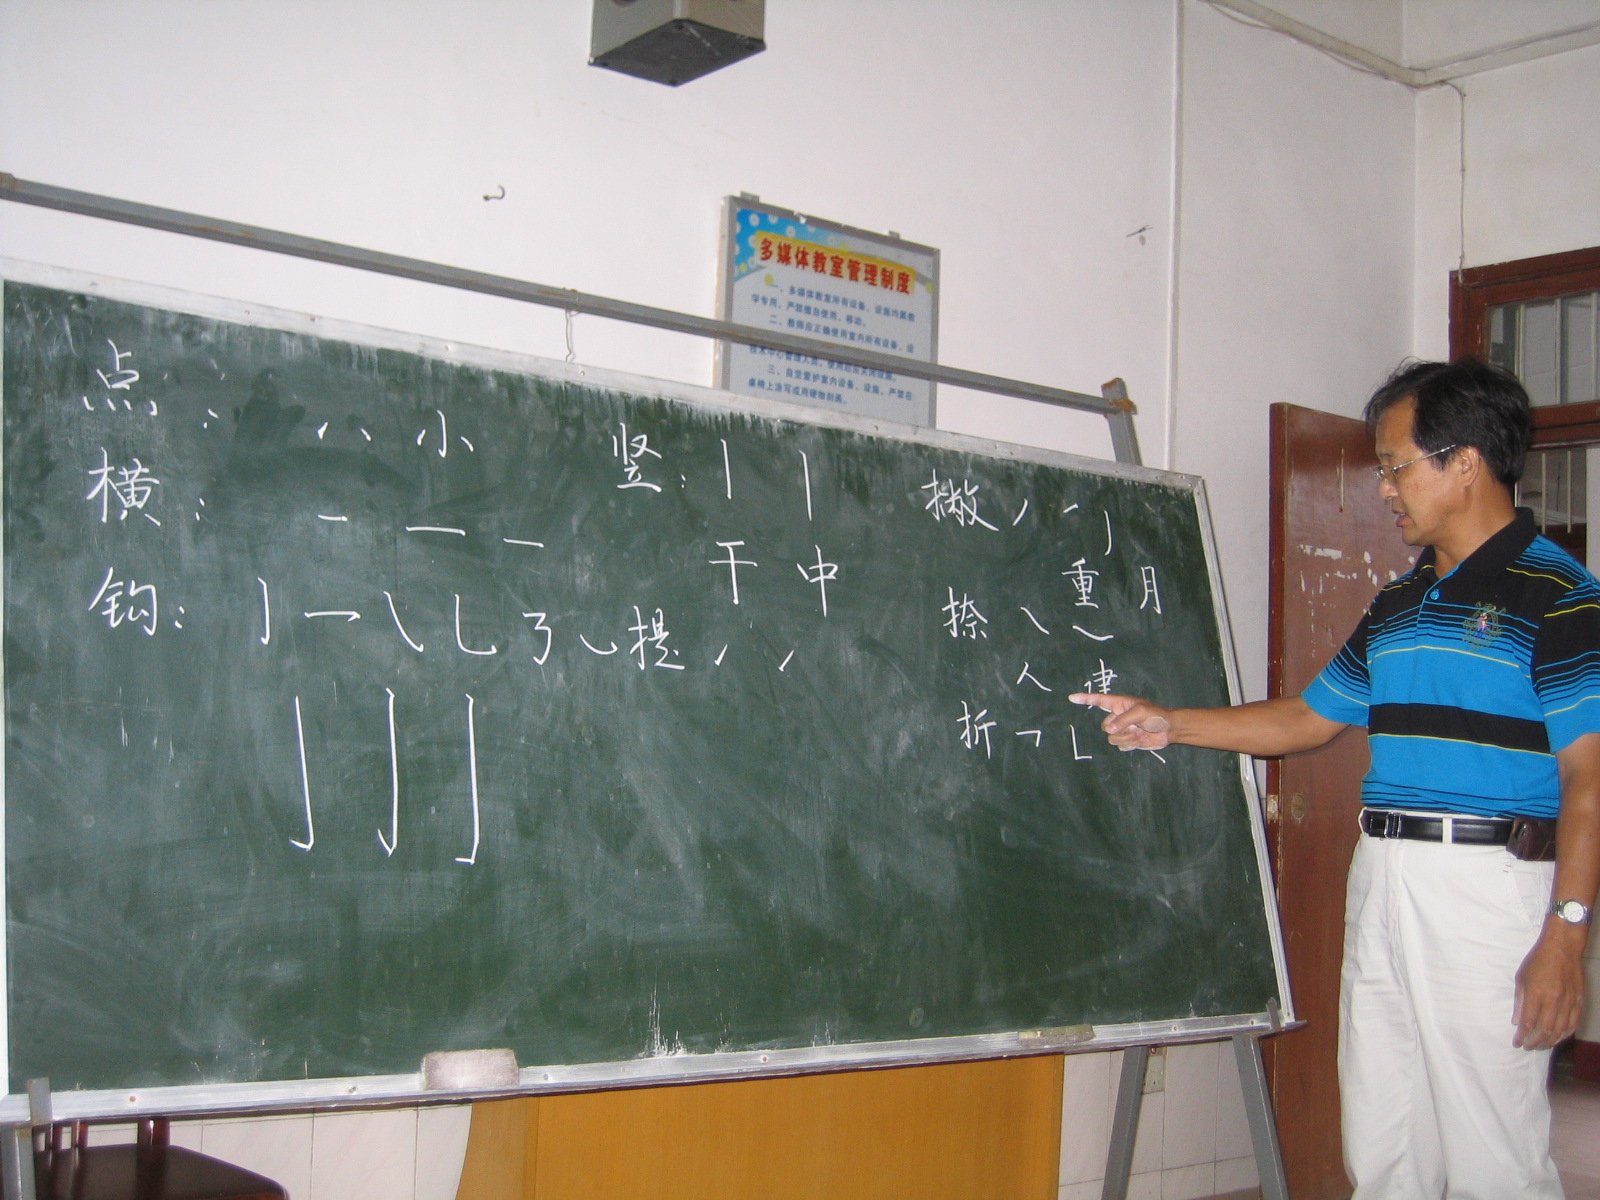 多媒体教室管理制度
一、多媒体教室所有设备、设施均属教
学专用，严禁擅自使用、移动。
二、教师应正确使用室内所有设备、设
三、自觉爱护室内设备、设施，严禁在
桌椅上涂写或用硬物刻画。
点：丶 八 小
横：一 一 一
钩：亅 乛 ㇂ 乚 ㇌ ㇃
提 ㇀ ㇀
竖：丨 丨
干 中
撇 丿 ㇒ 丿
重 月
捺 ㇏ ㇏
人 建
折 ㇕ ㇗